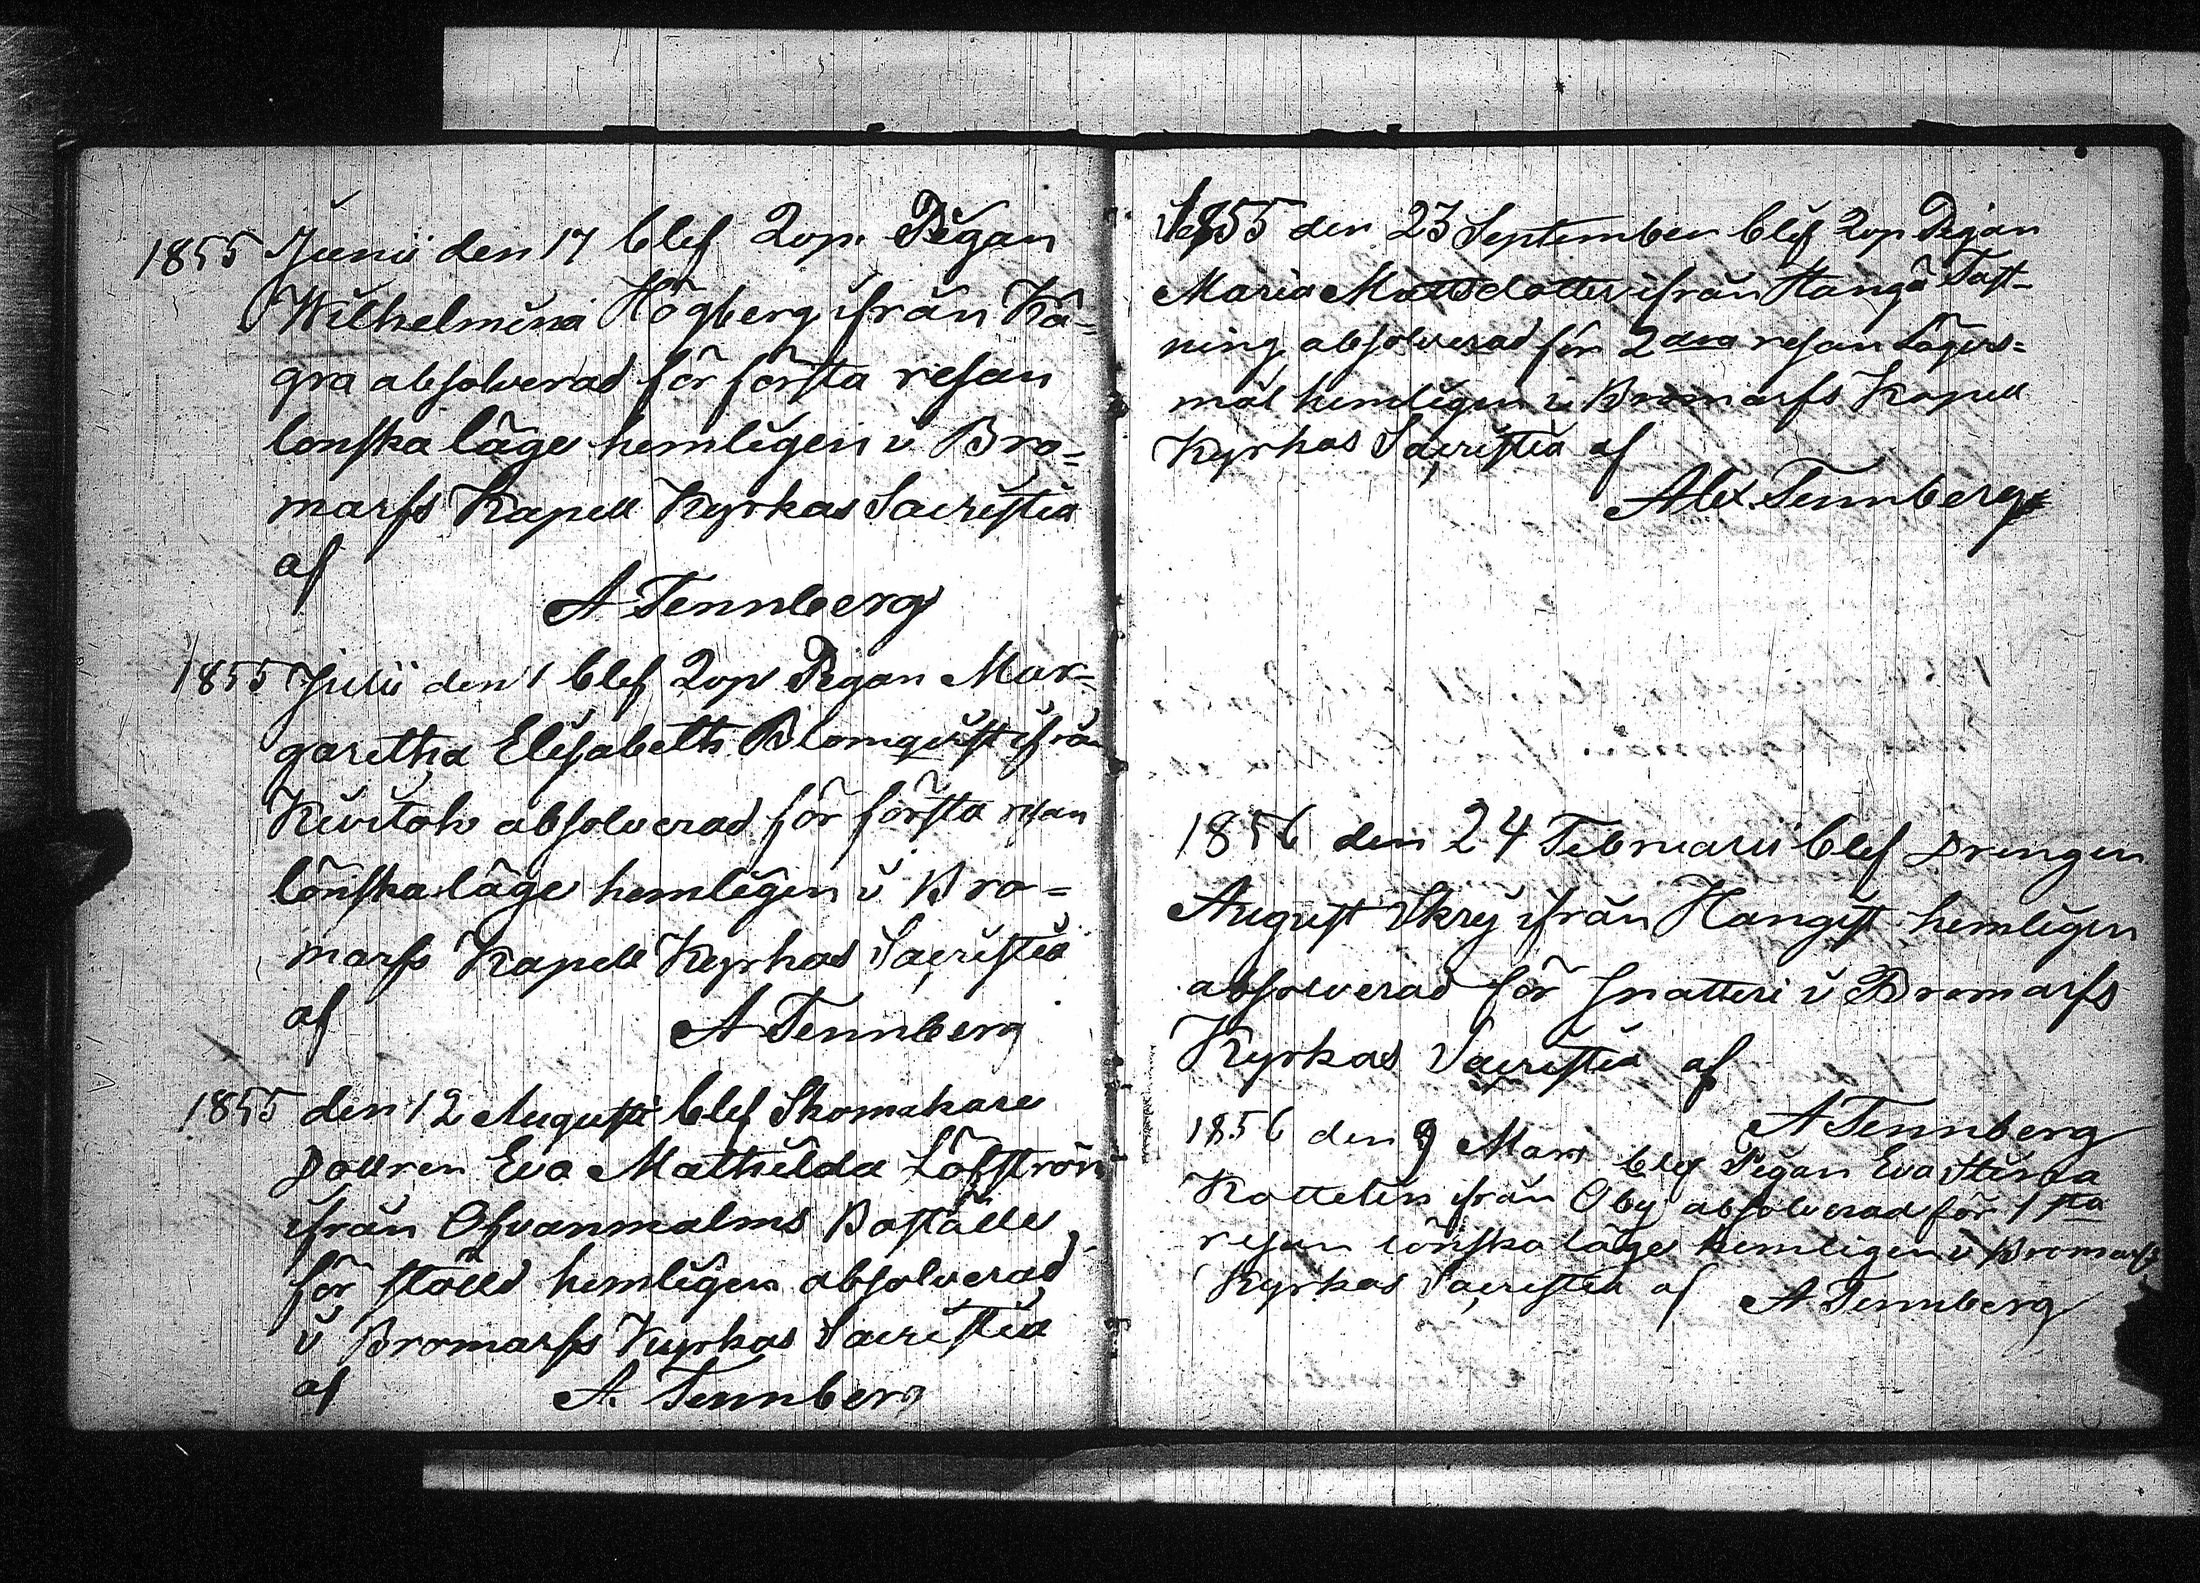 1855 Junii den 17 blef Qvp. Pigan
Wilhelmina Högberg ifrån Kå=
gra absolverad för första resan
lönska läge hemligen i Bro=
marfs Kapell Kyrkas Sacristia
af
A Tennberg
1855 Julii den 1 blef Qvp Pigan Mar=
garetha Elisabeth Blomqvist ifrån
absolverad för första resan
lönska läge hemligen i Bro=
marfs Kapell Kyrkas Sacristia
af A Tennberg
1855 den 12 Augusti blef Skomakare
Dottren Eva Mathilda Löfström
ifrån Ofvanmalms Boställe
för stöld hemligen absolverad
i Bromarfs Kyrkas Sacristia
af A. Tennberg
1855 den 23 September blef Qvp Pigan
Maria Mattsdotter ifrån Hangö Fäst=
ning absolverad för 2dra resan Lägers=
mål hemligen i Bromarfs Kapell
Kyrkas Sacristia af
Alex. Tennberg
1856 den 24 Februarii blef Drengen
August Skry ifrån Hangist hemligen
absolverad för snatteri i Bromarfs
Kyrkas Sacristia af
A Tennberg
1856 den 9 Mars blef Pigan Eva Stina
ifrån Öby absolverad för 1sta
resan lönska läge hemligen i Bromarfs
Kyrkas Sacristia af A Tennberg